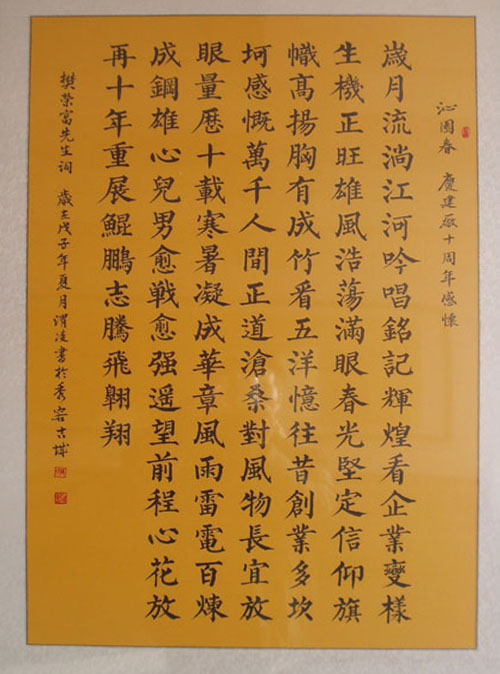 沁園春 慶建厰十周年感懷
歲月流淌江河吟唱銘記輝煌看企業變樣
生機正旺雄風浩蕩滿眼春光堅定信仰旗
幟髙揚胸有成竹看五洋憶往昔創業多坎
坷感慨萬千人間正道滄桑對風物長宜放
眼量歷十載寒暑凝成華章風雨雷電百煉
成鋼雄心兒男愈戰愈强遥望前程心花放
再十年重展鯤鵬志騰飛翱翔
樊榮富先生詞 歲在戊子年夏月渭凌書於秀容古城